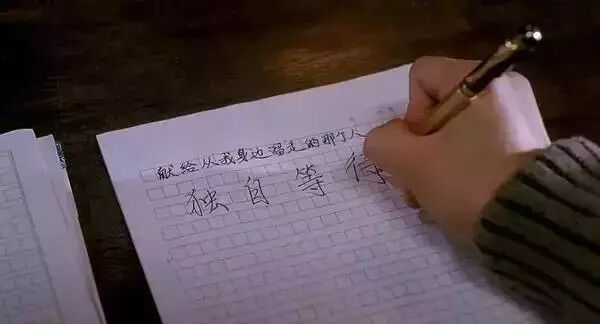 献给从我身边溜走的那个人
独自等待